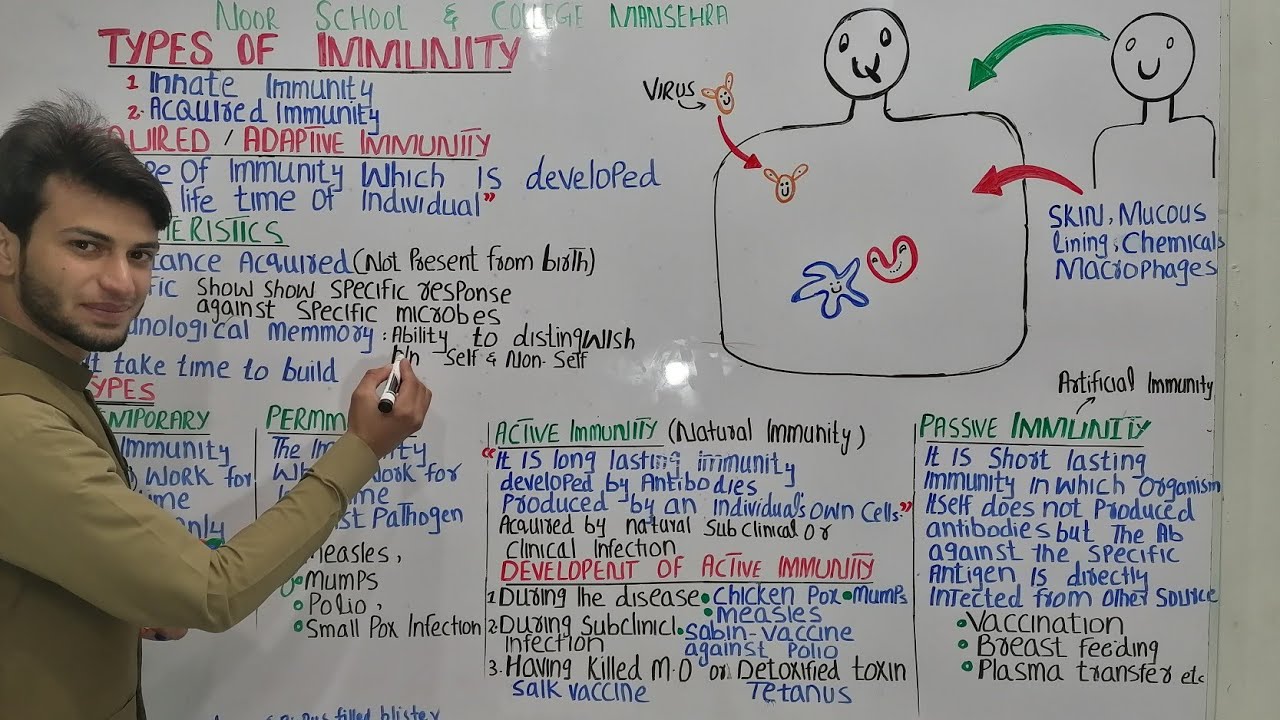 NOOR SCHOOL & COLLEGE MANSEHRA
TYPES OF IMMUNITY
1 Innate Immunity
2. Acquired Immunity
/ ADAPTIVE IMMUNITY
Of Immunity Which Is developed
life time of Individual"
Acquired (Not Present from birth)
show show specific response
against specific microbes
memmory : Ability to distingwish
Self & Non-Self
take time to build
PERMM
Immunity
The
Work for
Work for
Pathogen
Measles,
MumPs
Polio,
Small Pox Infection
VIRUS
SKIN, Mucous
lining, Chemicals
Macrophages
ACTIVE IMMUNITY (Natural Immunity)
"It Is long lasting immunity
developed by Antibodies
Produced by an Individual's own Cells."
Acquired by natural Sub Clinical Or
Clinical Infection
DEVELOPENT OF ACTIVE IMMUNITY
1 During the disease • Chicken Pox • Mumps
• measles
2. During Subclinicl • Sabin-vaccine
Infection against Polio
3. Having Killed M.O or Detoxified toxin
Salk vaccine Tetanus
Artificial Immunity
PASSIVE IMMUNITY
It Is Short lasting
Immunity In which Organism
Itself does not Produced
antibodies but The Ab
against the specific
Antigen Is directly
Injected from Other Source
• Vaccination
• Breast feeding
• Plasma transfer etc
filled blister